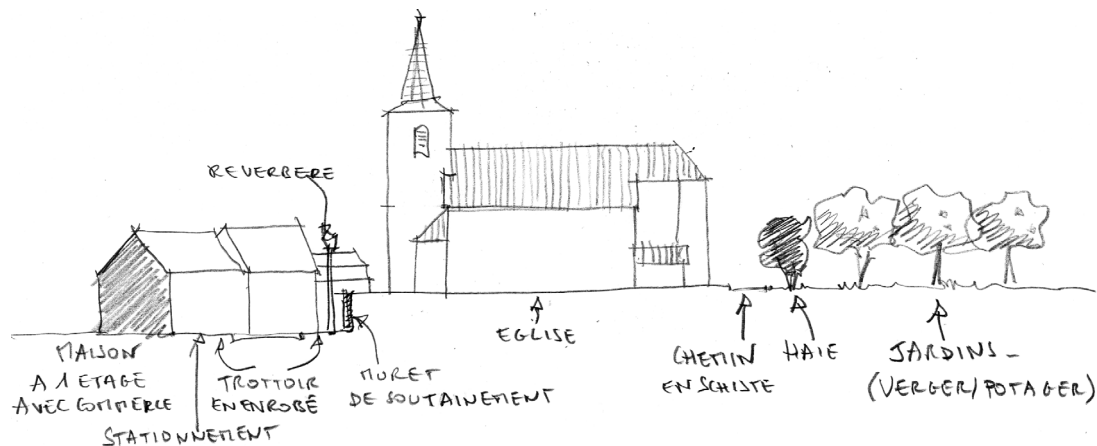 REVERBERE
EGLISE
MAISON
A 1 ETAGE
AVEC COMMERCE
STATIONNEMENT
TROTTOIR
EN ENROBÉ
MURET
DE SOUTAINEMENT
CHEMIN
EN SCHISTE
HAIE
JARDINS -
(VERGER/POTAGER)